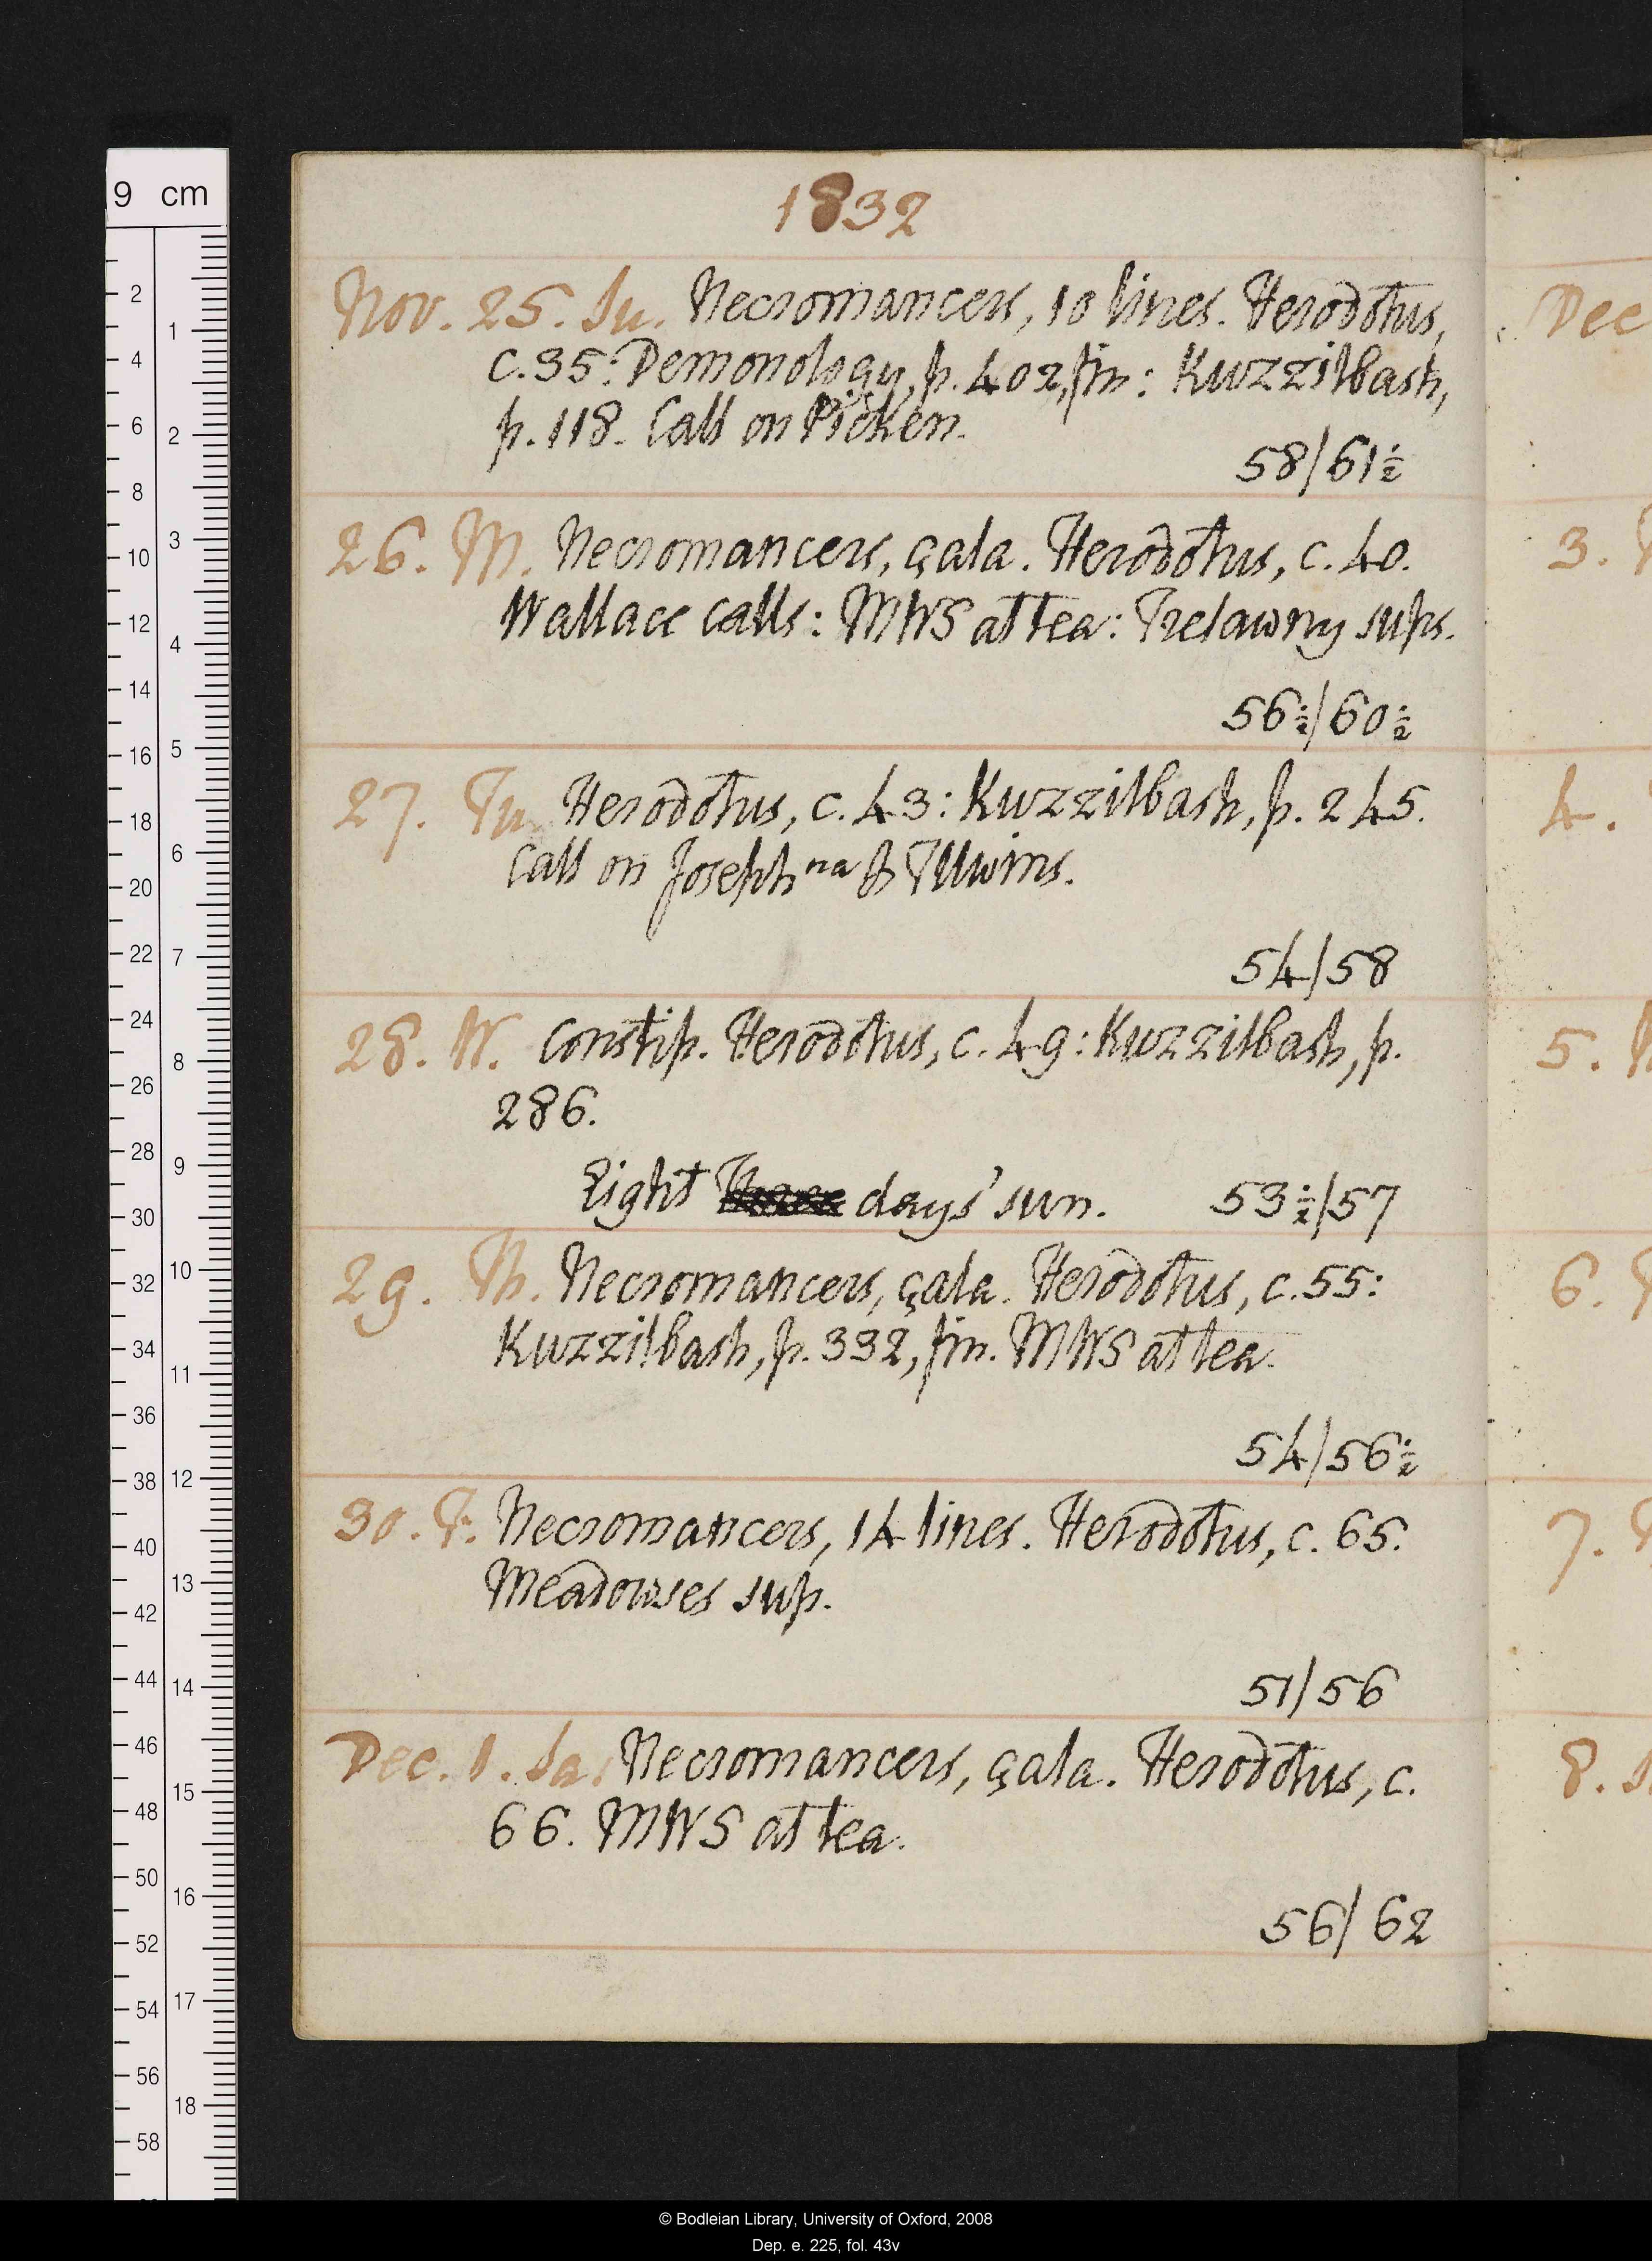 1832
Nov. 25. Su. Necromancers, 10 lines. Herodotus,
c. 35: Demonology, p. 402, fin: Kuzzilbash,
p. 118. Call on Picken.
58/61½
26. M. Necromancers, çala. Herodotus, c. 40.
Wallace calls: MWS at tea: Trelawny sups.
56½/60½
27. Tu. Herodotus, c. 43: Kuzzilbash, p. 245.
Call on Joseph na & TUwins.
54/58
28. W. Constip. Herodotus, c. 49: Kuzzilbash, p.
286.
Eight Three days' sun. 53½/57
29. Th. Necromancers, çala. Herodotus, c. 55:
Kuzzilbash, p. 332, fin. MWS at tea.
54/56½
30. F. Necromancers, 14 lines. Herodotus, c. 65.
Meadowses sup.
51/56
Dec. 1. Sa. Necromancers, çala. Herodotus, c.
66. MWS at tea.
56/62
Dec
3.
4.
5.
6.
7.
8.
9 cm
2
4
6
8
10
12
14
16
18
20
22
24
26
28
30
32
34
36
38
40
42
44
46
48
50
52
54
56
58
1
2
3
4
5
6
7
8
9
10
11
12
13
14
15
16
17
18
© Bodleian Library, University of Oxford, 2008
Dep. e. 225, fol. 43v